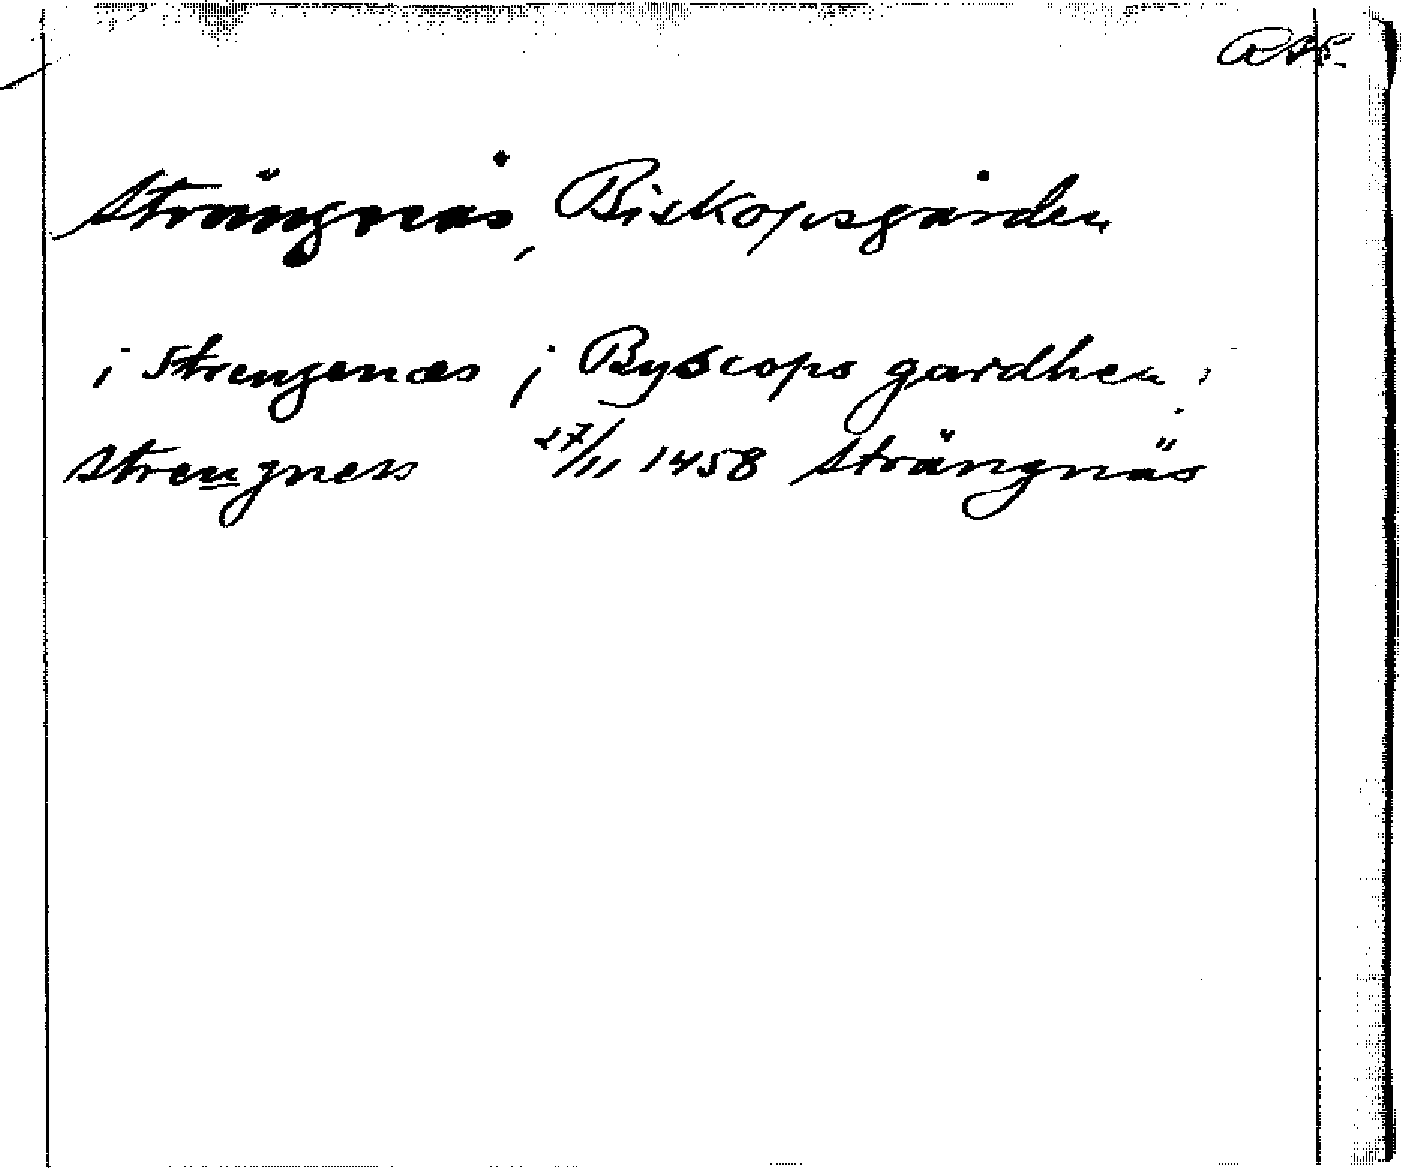 Strängnäs, Biskopsgården
i Strengenæs j Byscops gardhen ;
Strengness 27/11 1458 Strängnäs